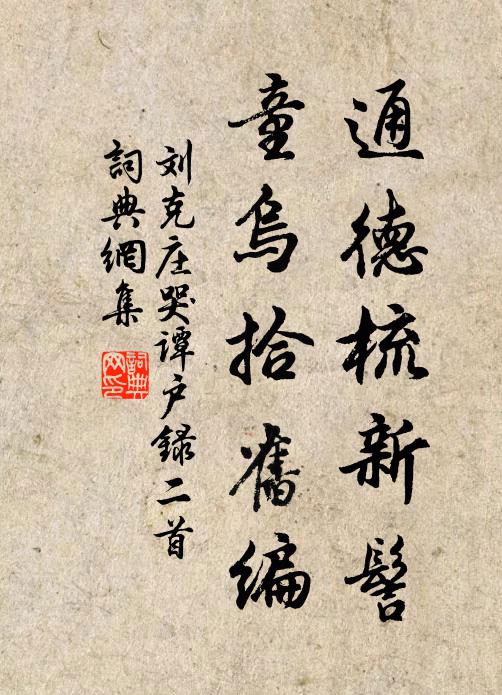 通德梳新髻
童烏拾舊编
刘克庄哭谭户録二首
詞典網集
詞典网印